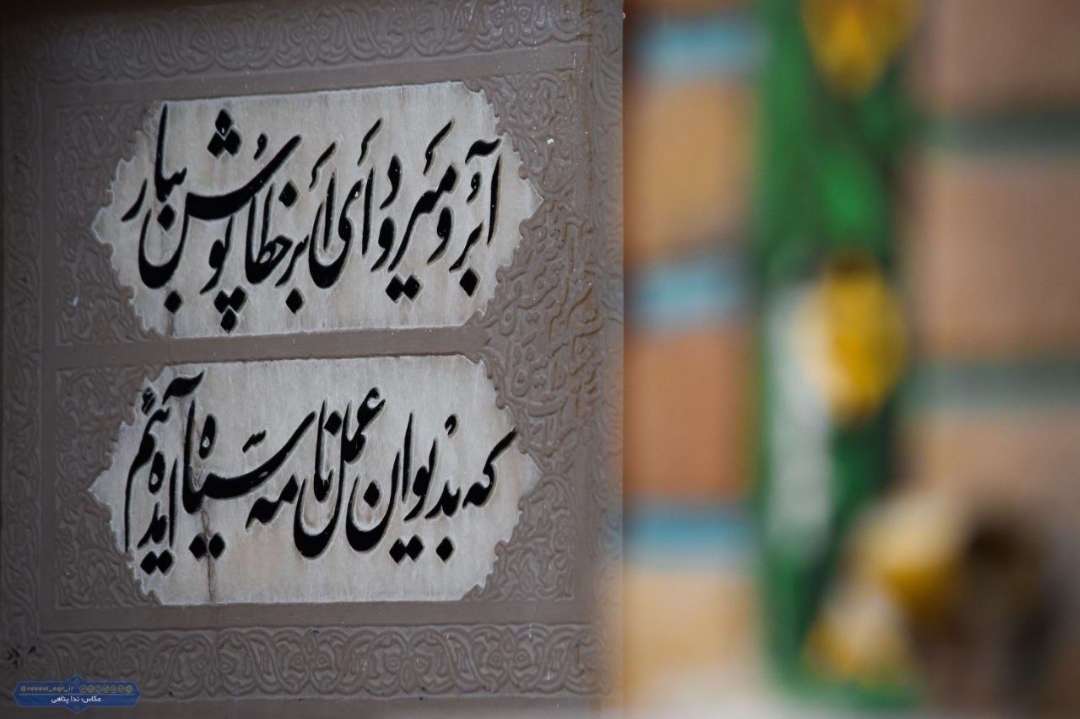 آبرو میرود أی أبر خطا پوش ببار
که بدیوان عمل نامه سیاه آمده ایم
@razavi_aqr_ir
عکاس: ندا پناهی